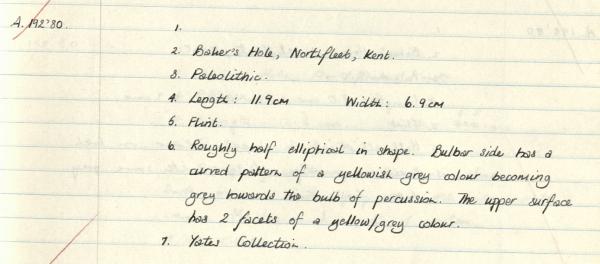 A. 192'80.
1.
2. Baker's Hole, Northfleet, Kent.
3. Paleolithic.
4. Length: 11.9cm Width: 6.9cm
5. Flint.
6. Roughly half elliptical in shape. Bulbar side has a
curved pattern of a yellowish grey colour becoming
grey towards the bulb of percussion. The upper surface
has 2 facets of a yellow/grey colour.
7. Yates Collection.